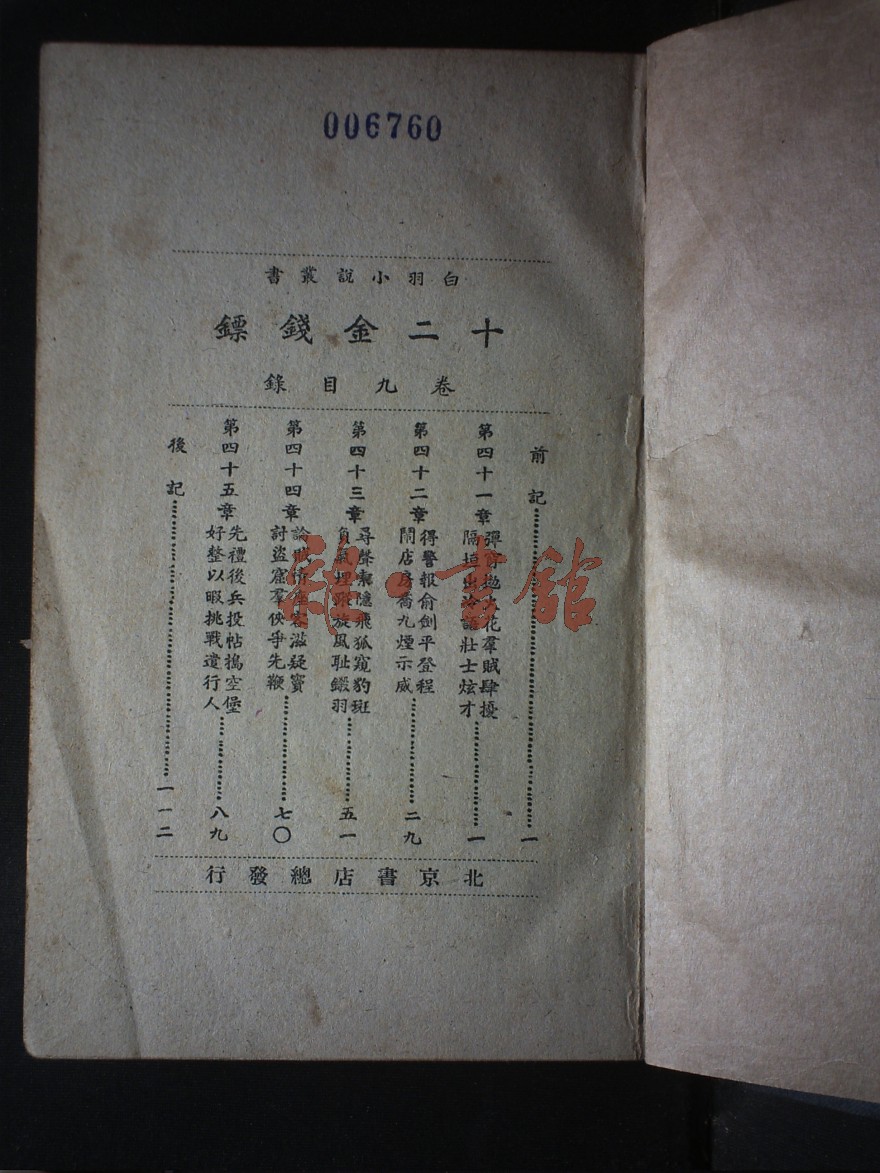 006760
白羽小說叢書
十二金錢鏢
卷九目錄
前記……一
第四十一章 彈窗拋火花羣賊肆擾
隔垣出冷語壯士炫才……一
第四十二章 得警報俞劍平登程
鬧店房喬九煙示威……二九
第四十三章 尋聲索隱飛狐窺豹斑
負氣埋蹤旋風恥鎩羽……五一
第四十四章 論賊情座客滋疑竇
討盜窟羣俠爭先鞭……七〇
第四十五章 先禮後兵投帖搗空堡
好整以暇挑戰遣行人……八九
後記……一一二
北京書店總發行
書館